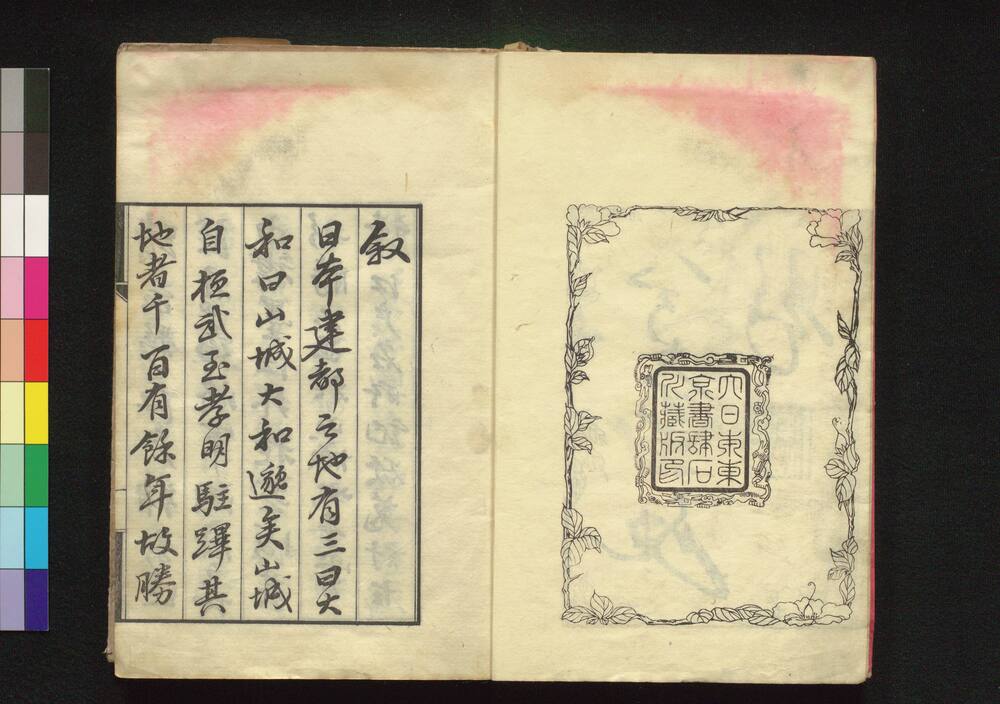 大日本東
京書肆石
川藏版印
叙
日本建都之地有三曰大
和曰山城大和邈矣山城
自桓武至孝明駐蹕其
地者千百有餘年故勝